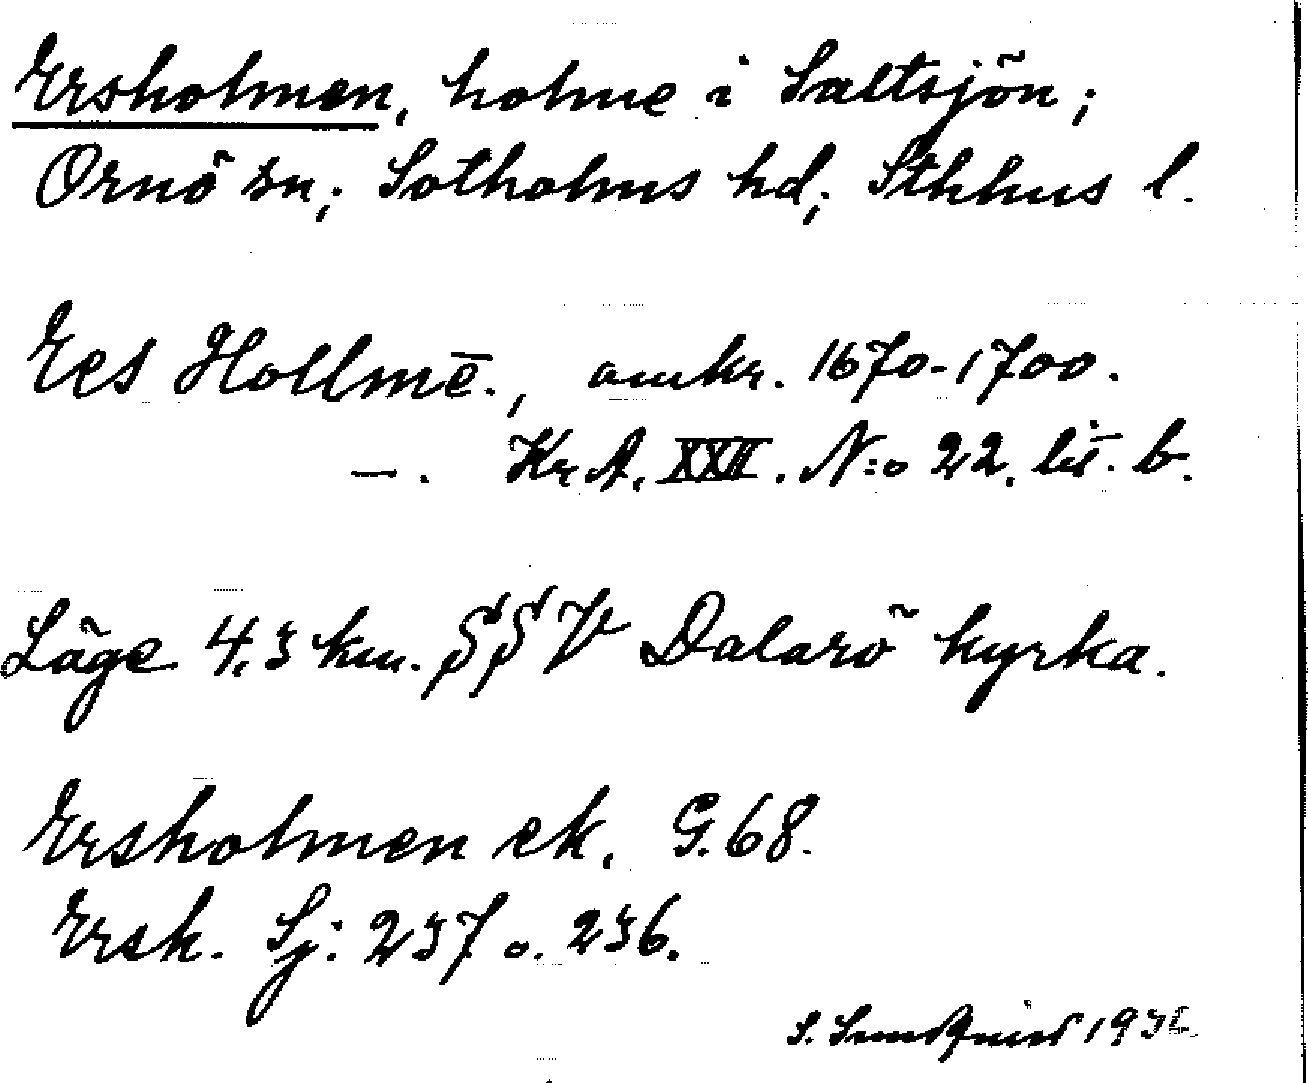 Ersholmen, holme i Saltsjön;
Ornö sn; Sotholms hd; Sthlms l.
Ers Hollmē., omkr. 1670-1700.
—. Kr. A. XXII. N:o 22. lit. b.
Läge 4,3 km. SSV Dalarö kyrka.
Ersholmen ek. G. 68.
Ersh. Sj: 237 o. 236.
S. Sundquist